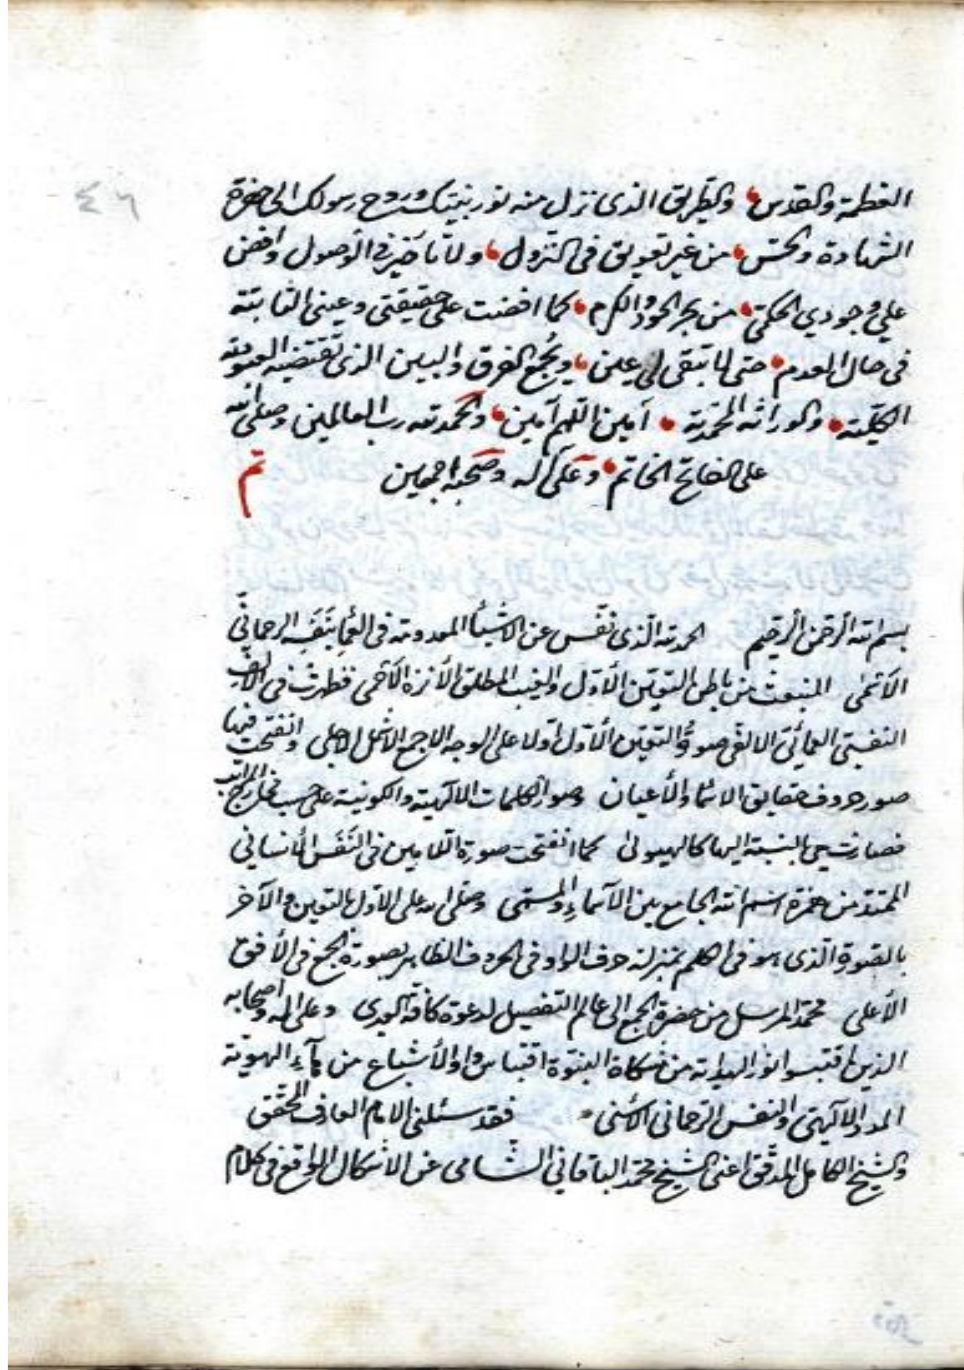 ٤٦
العظمة والقدس والطريق الذي نزل منه نور نبيتك وروح رسولك الى حضرة
الشهادة والحس من غير تعويق في النزول ولا تأخير في الوصول وافض
علي وجودي الحكمي من بحر الجود والكرم كما افضت على حقيقتي وعيني الثابتة
في حال العدم حتى لا تبقى لي عين ويجمع الفرق والبين الذي تقتضيه العبودية
الكلية والوراثه المحمدية آمين اللهم آمين والحمد لله رب العالمين وصلى الله
على الفاتح الخاتم وعلى آله وصحبه اجمعين تم
بسم الله الرحمن الرحيم الحمد لله الذي نفس عن الاشياء المعدومة في العماء بنفسه الرحماني
الأسمى المنبعث من باطن التعين الأول والغيب المطلق الأنزه الأحمى فظهرت في الألف
النفسي العمائي الالفي صورة التعين الأول اولا على الوجه الاجمع الاشمل الاجلى وانفتحت فيها
صور حروف حقايق الاسماء والأعيان وصور الكلمات الالهية والكونية على حسب المراتب
فصارت هي بالنسبة اليها كالهيولى كما انفتحت صورة التعين في النفس الأنساني
الممتد من حضرة اسم الله الجامع بين الأسماء والمسمى وصلى الله على الاول بالتعين والآخر
بالصورة الذي هو في الكلم بمنزلة حرف الواو في الحروف الظاهر بصورة الجمع في الأفق
الأعلى محمد المرسل من حضرة الجمع الى عالم التفصيل لدعوة كافة الورى وعلى آله واصحابه
الذين اقتبسوا نور الهداية من مشكاة النبوة اقتباس والأشباع من ماء الهوية
المدد الالهي والنفس الرحماني الاسنى فقد سئلني الامام العارف المحقق
والشيخ الكامل المدقق اعني الشيخ محمد الباقاني الشامي عن الاشكال الواقع في كلام